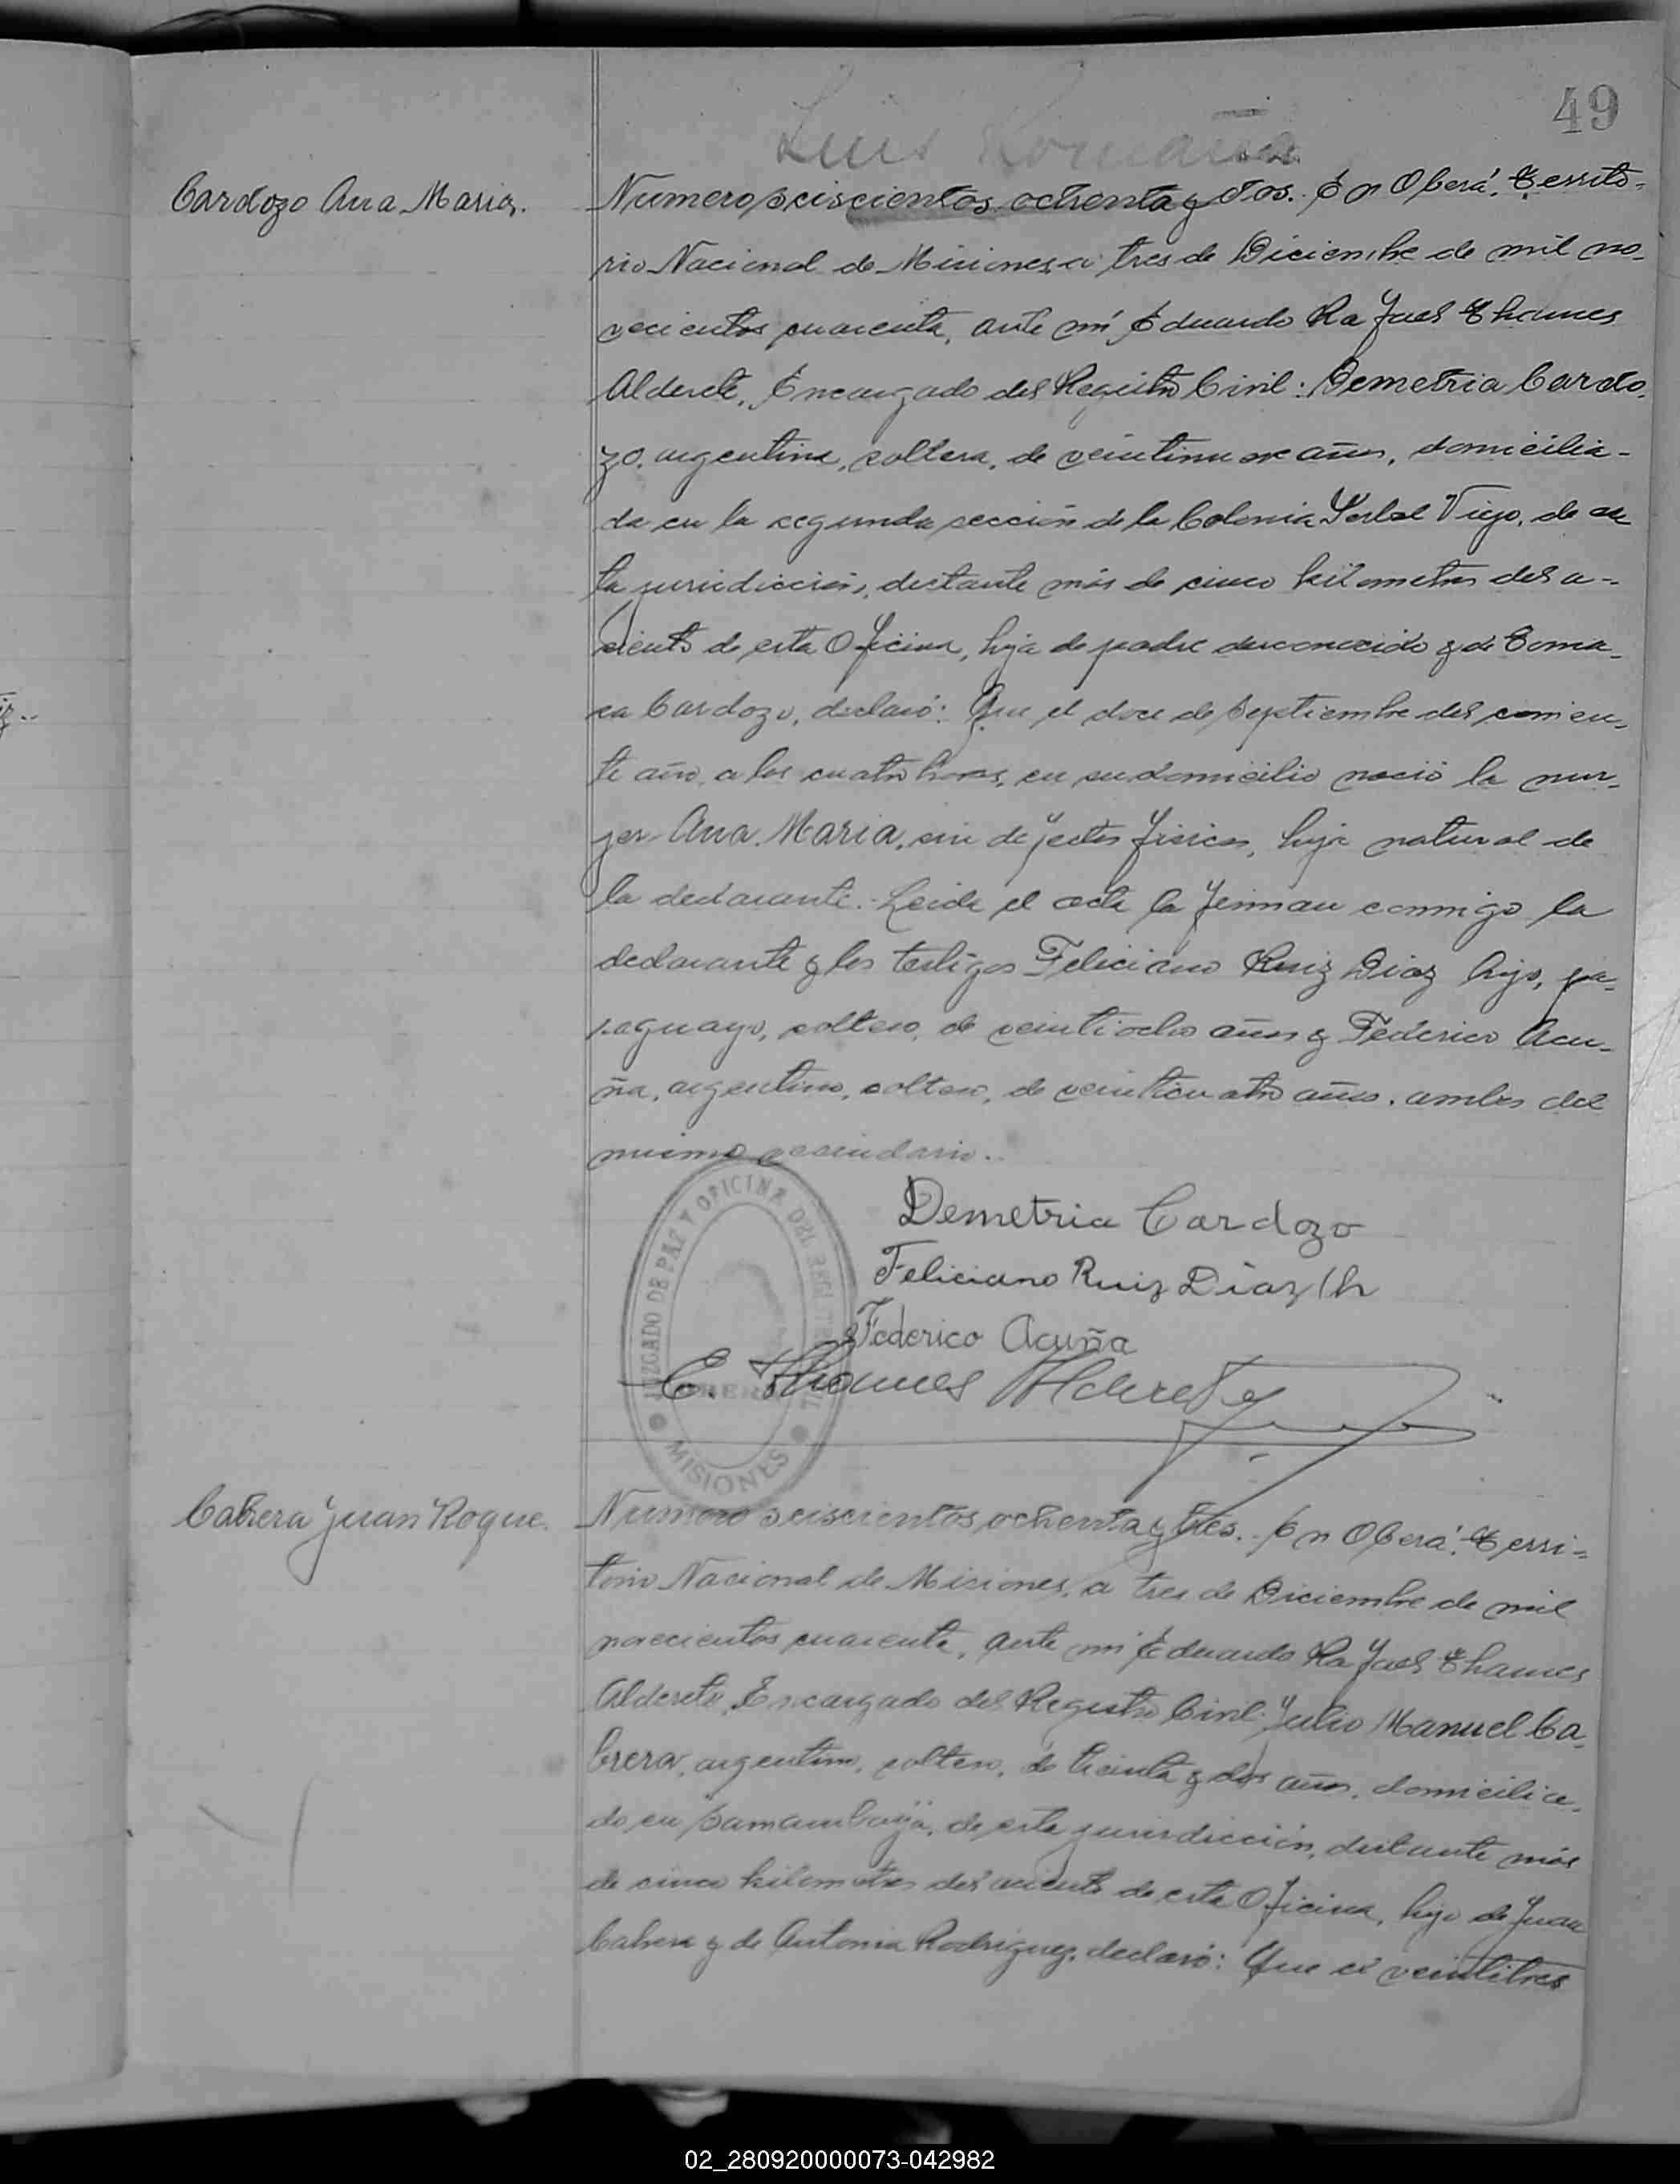 49
Luis Romaña
Cardozo Ana Maria.
Numero seiscientos ochenta y dos. En Oberá, Territo-
rio Nacional de Misiones, a tres de Diciembre de mil no-
vecientos cuarenta, ante mí Eduardo Rafael Thames
Alderete, Encargado del Registro Civil: Demetria Cardo-
zo, argentina, soltera, de veintinueve años, domicilia-
da en la segunda sección de la Colonia Yerbal Viejo, de es
ta jurisdicción, distante más de cinco kilometros del a-
siento de esta Oficina, hija de padre desconocido y de Toma-
sa Cardozo, declaró: Que el doce de Septiembre del corrien-
te año, a las cuatro horas, en su domicilio nació la mu-
jer Ana Maria, sin defectos fisicos, hija natural de
la declarante.- Leida el acta la firman conmigo la
declarante y los testigos Feliciano Ruiz Diaz hijo, pa-
raguayo, soltero, de veintiocho años y Federico Acu-
ña, argentino, soltero, de veinticuatro años, ambos del
mismo vecindario..
Demetria Cardozo
Feliciano Ruiz Díaz (h
Federico Acuña
E. Thames Alderete
JUZGADO DE PAZ Y OFICINA DEL REGISTRO CIVIL
OBERÁ
MISIONES
Cabrera Juan Roque.
Numero seiscientos ochenta y tres.- En Oberá, Terri-
torio Nacional de Misiones, a tres de Diciembre de mil
novecientos cuarenta, ante mí Eduardo Rafael Thames
Alderete, Encargado del Registro Civil: Julio Manuel Ca-
brera, argentino, soltero, de treinta y dos años, domicilia-
do en Samambaya, de esta jurisdicción, distante más
de cinco kilometros del asiento de esta Oficina, hijo de Juan
Cabrera y de Antonia Rodriguez, declaró: Que el veintitres
02_280920000073-042982